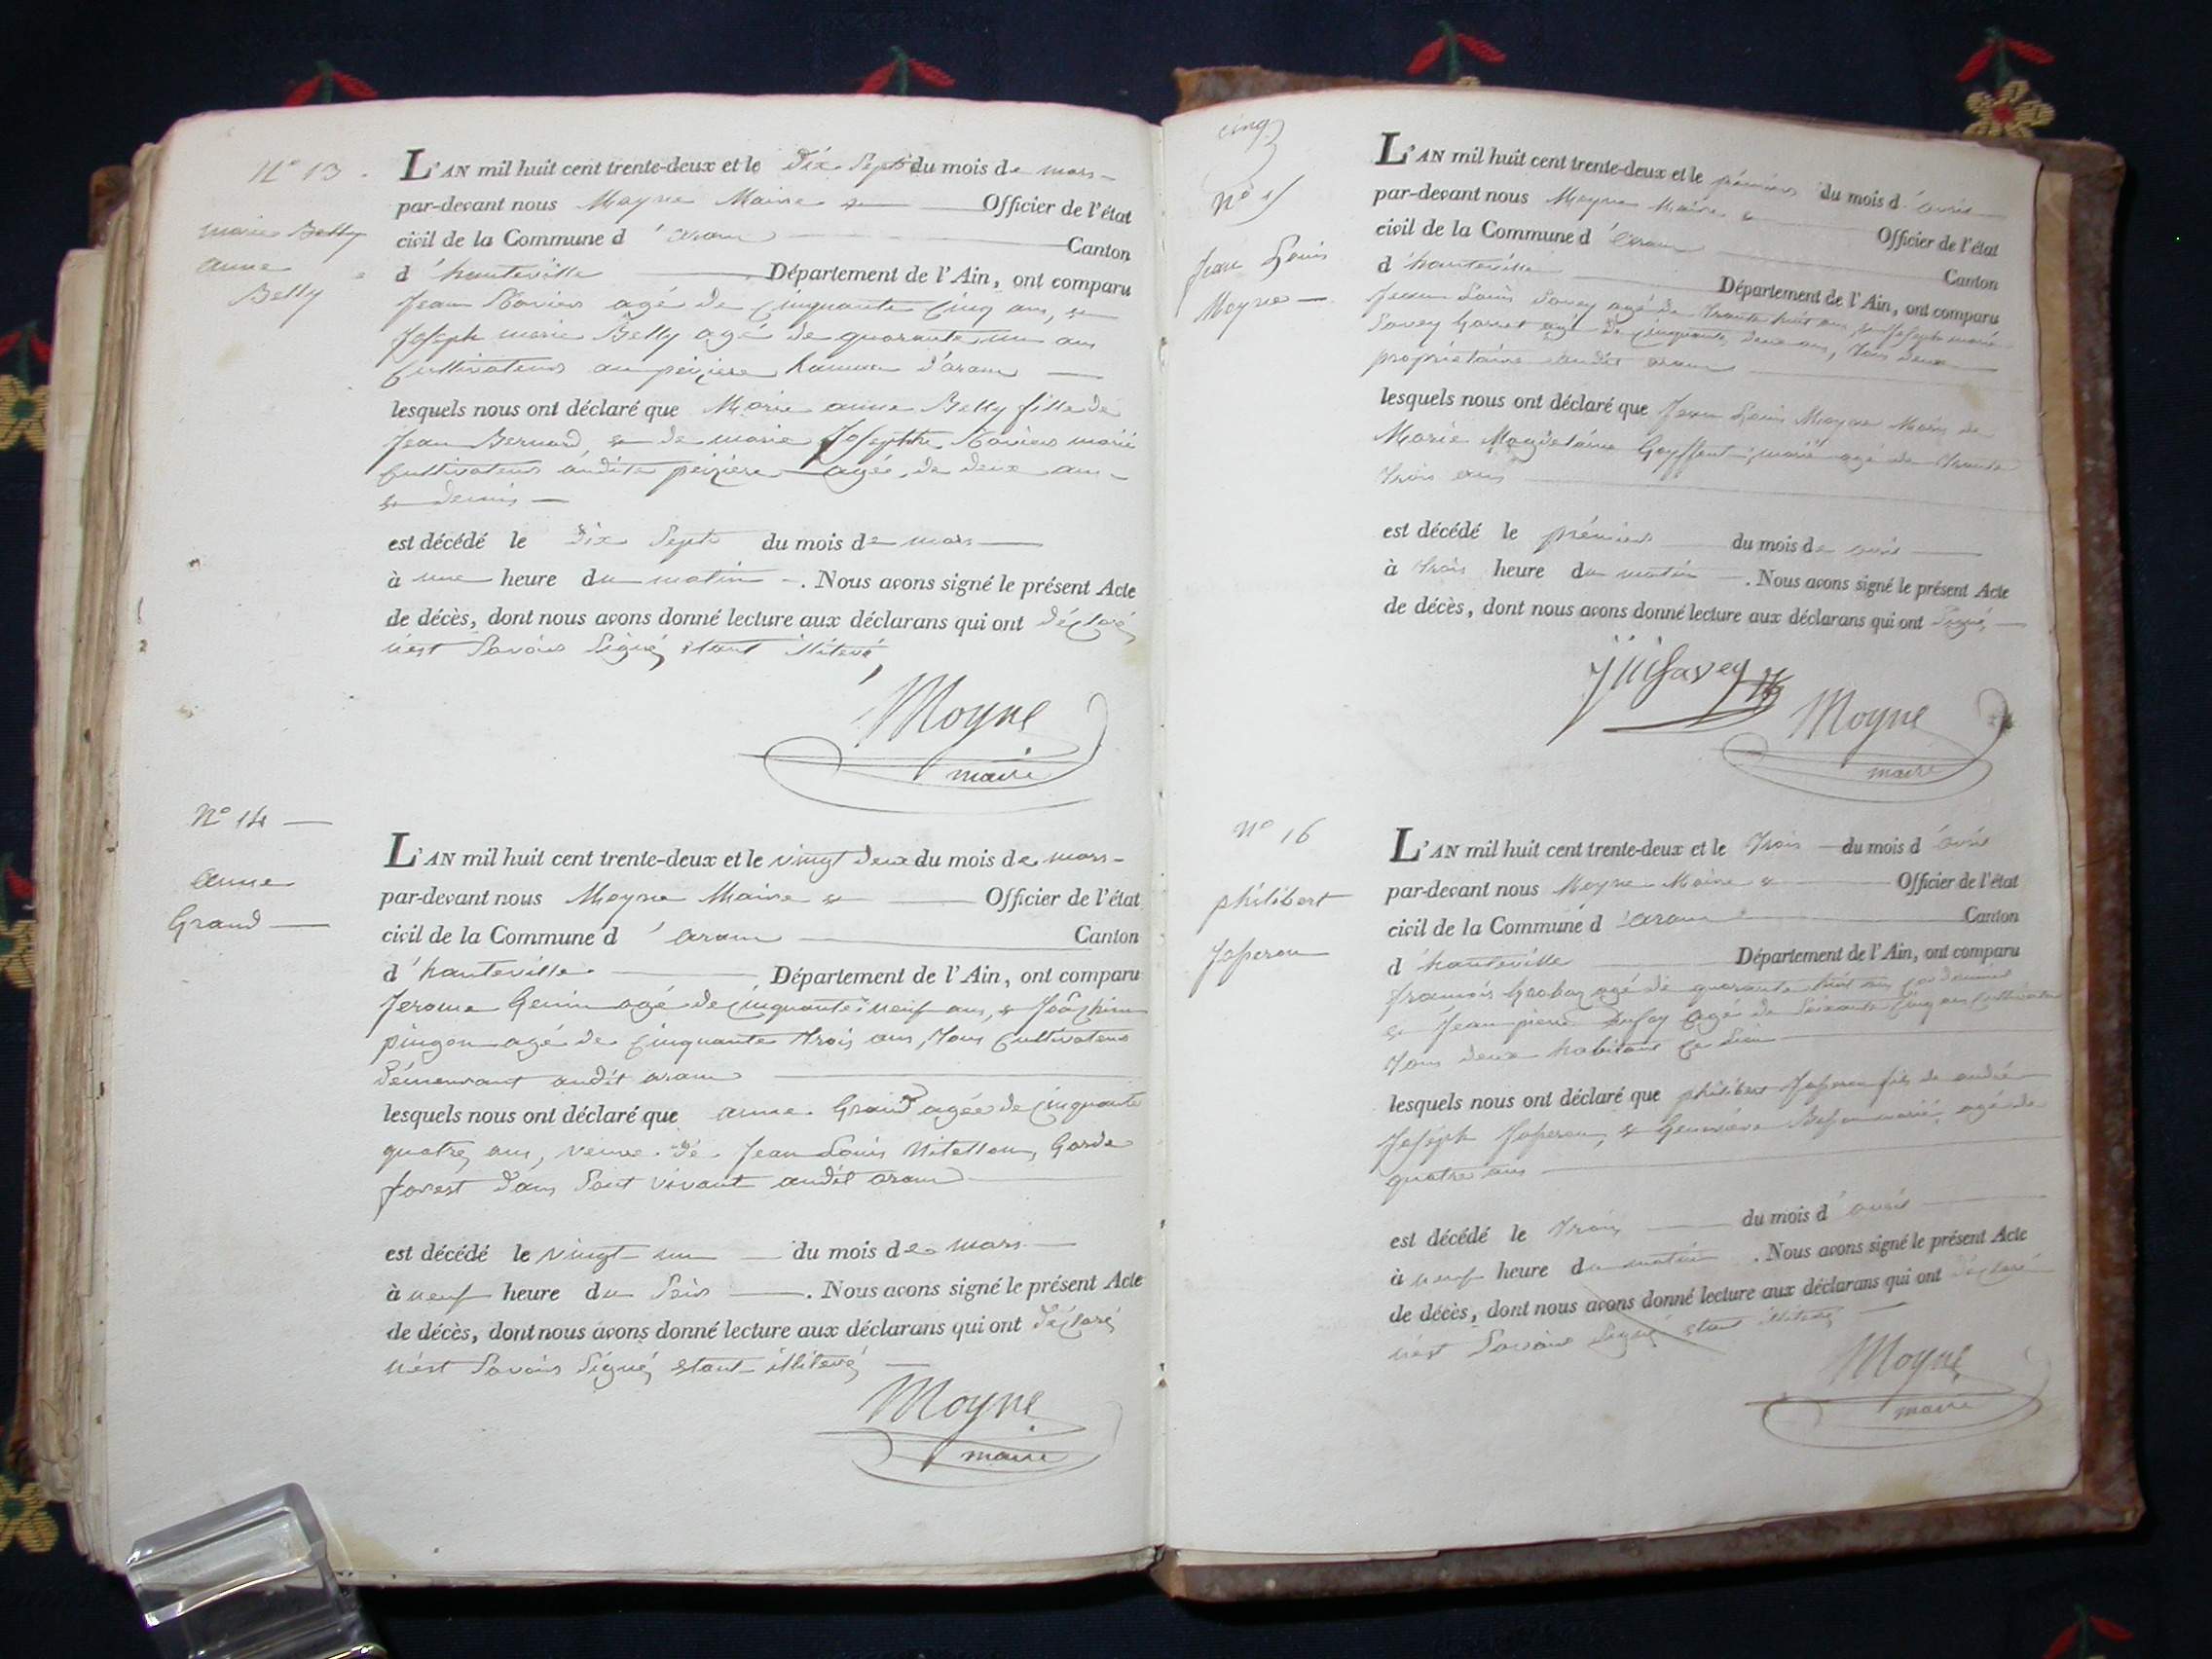 N° 13
marie Belly
anne
Belly
L'AN mil huit cent trente-deux et le dix Sept du mois de mars
par-devant nous Moyne Maire et Officier de l'état
civil de la Commune d'aranc Canton
d'hauteville Département de l'Ain, ont comparu
Jean agé de cinquante cinq ans, et
Joseph marie Belly agé de quarante un ans
cultivateurs au peiziere hameau d'aranc
lesquels nous ont déclaré que Marie anne Belly fille de
Jean Bernard et de marie Josephte marié
cultivateurs audite peiziere agée de deux ans
et demis
est décédé le dix Sept du mois de mars
à une heure du matin. Nous avons signé le présent Acte
de décès, dont nous avons donné lecture aux déclarans qui ont déclaré
n'est Savoir Signé, etant illiteré
Moyne
maire
N° 14
anne
Grand
L'AN mil huit cent trente-deux et le vingt deux du mois de mars
par-devant nous Moyne Maire et Officier de l'état
civil de la Commune d'aranc Canton
d'hauteville Département de l'Ain, ont comparu
Jerome Genin agé de cinquante neuf ans, et Joachim
pingon agé de cinquante trois ans, tous cultivateurs
démeurant audit aranc
lesquels nous ont déclaré que anne Grand agée de cinquante
quatre ans, veuve de Jean Louis Mitellon, Garde
forest dans Sont vivant audit aranc
est décédé le vingt un du mois de mars
à neuf heure du Soir. Nous avons signé le présent Acte
de décès, dont nous avons donné lecture aux déclarans qui ont déclaré
n'est Savoir Signé, etant illiteré
Moyne
maire
cinq
N° 15
Jean Louis
Moyne
L'AN mil huit cent trente-deux et le prémiers du mois d'avril
par-devant nous Moyne Maire et Officier de l'état
civil de la Commune d'aranc Canton
d'hauteville Département de l'Ain, ont comparu
Jean Louis Savey agé de trante huit ans, et Joseph marie
Savey agé de cinquante deux ans, tous deux
propriétaire audit aranc
lesquels nous ont déclaré que Jean Louis Moyne Maris de
Marie Magdelaine marié agé de trante
trois ans
est décédé le prémiers du mois de avril
à trois heure du matin. Nous avons signé le présent Acte
de décès, dont nous avons donné lecture aux déclarans qui ont Signé
Savey
Moyne
maire
N° 16
philibert
Josperon
L'AN mil huit cent trente-deux et le trois du mois d'avril
par-devant nous Moyne Maire et Officier de l'état
civil de la Commune d'aranc Canton
d'hauteville Département de l'Ain, ont comparu
francois Grobas agé de quarante huit ans cordonnier
et Jean pierre Dufay agé de Soixante cinq ans cultivateur
tous deux habitant ce Lieu
lesquels nous ont déclaré que philibert Josperon fils de andré
Joseph Josperon, et Geneviève marié, agé de
quatre ans
est décédé le trois du mois d'avril
à neuf heure du matin. Nous avons signé le présent Acte
de décès, dont nous avons donné lecture aux déclarans qui ont déclaré
n'est Savoir Signé etant illiteré
Moyne
maire